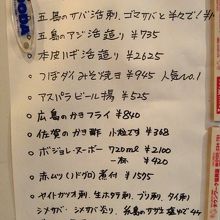 五島のサバ活刺、ゴマサバと半々で
五島のアジ活造り ¥735
本皮ハギ活造り ¥2625
○つぼダイみそ焼き ¥945 人気No.1
○アスパラビール揚 ¥525
○広島のかきフライ ¥840
○佐賀のかき酢 小粒です ¥368
○ボジョレ・ヌーボー 720ml ¥2100
一杯 ¥420
○赤ムツ(ノドグロ)煮付 ¥1595
ヤイトカツオ刺、生ホタテ刺、ブリ刺、タイ刺
シメサバ・シメサバ炙り、糸島のサザエ